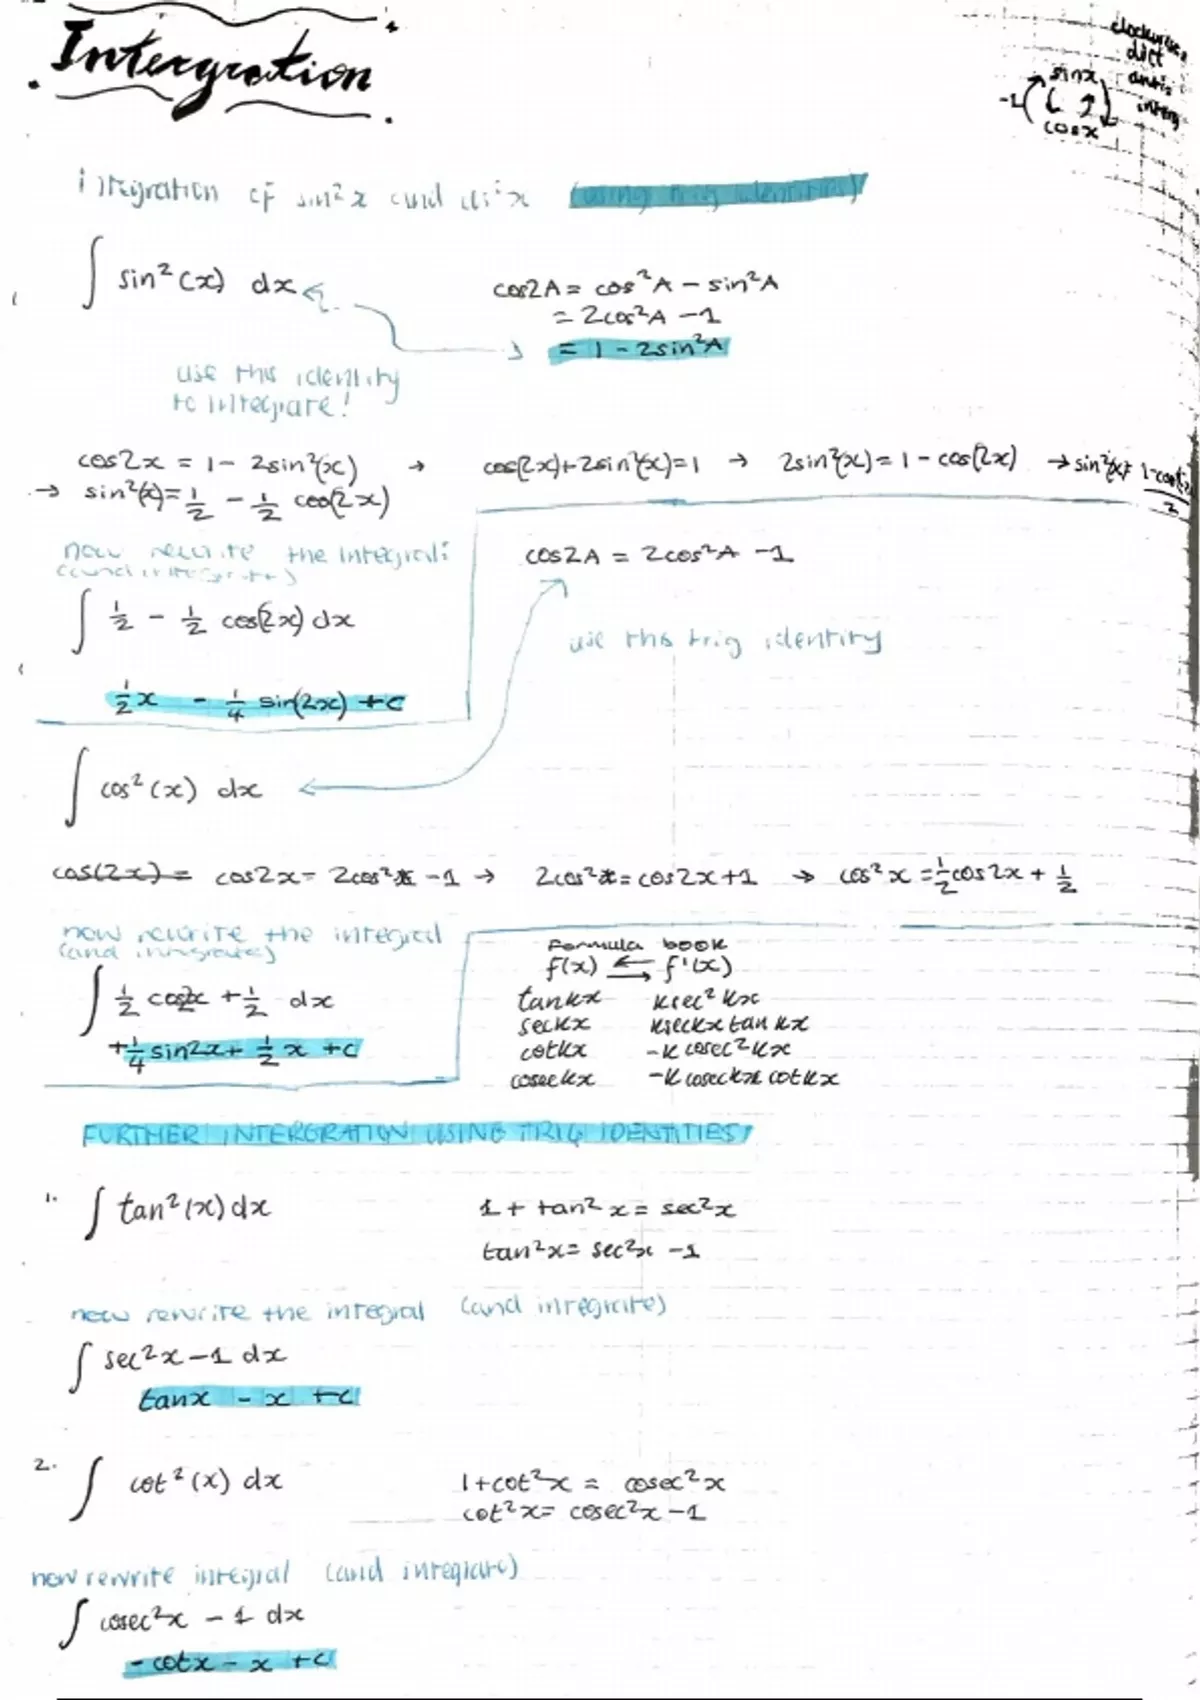 Intergration
clockwise,
dict
anti,
interg
sinx
-1
cosx
integration of sin²x and cos²x (using trig identities)
∫ sin²(x) dx
cos2A = cos²A - sin²A
= 2cos²A - 1
= 1 - 2sin²A
use this identity
to integrate!
cos2x = 1 - 2sin²(x) → cos(2x)+2sin²(x)=1 → 2sin²(x) = 1 - cos(2x) → sin²(x)= 1-cos(2x)/2
→ sin²(x)= 1/2 - 1/2 cos(2x)
now rewrite the integral:
(and integrate)
∫ 1/2 - 1/2 cos(2x) dx
1/2 x - 1/4 sin(2x) + c
cos2A = 2cos²A - 1
use this trig identity
∫ cos²(x) dx
cos(2x) = cos2x = 2cos²x - 1 → 2cos²x = cos2x + 1 → cos²x = 1/2 cos2x + 1/2
now rewrite the integral
(and integrate)
∫ 1/2 cos2x + 1/2 dx
+1/4 sin2x + 1/2 x + c
Formula book
f(x) ⇆ f'(x)
tankx ksec²kx
seckx kseckx tankx
cotkx -k cosec²kx
coseckx -k coseckx cotkx
FURTHER INTERGRATION USING TRIG IDENTITIES
1. ∫ tan²(x) dx
1 + tan²x = sec²x
tan²x = sec²x - 1
now rewrite the integral (and integrate)
∫ sec²x - 1 dx
tanx - x + c
2. ∫ cot²(x) dx
1+cot²x = cosec²x
cot²x = cosec²x - 1
now rewrite integral (and integrate)
∫ cosec²x - 1 dx
-cotx - x + c